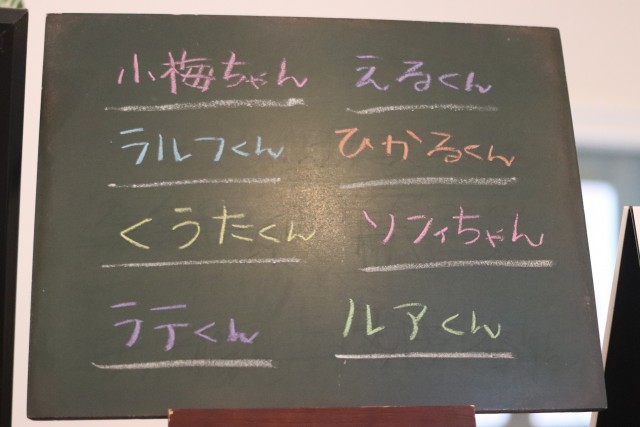 小梅ちゃん えるくん
ラルフくん ひかるくん
くうたくん ソフィちゃん
ラテくん ルアくん